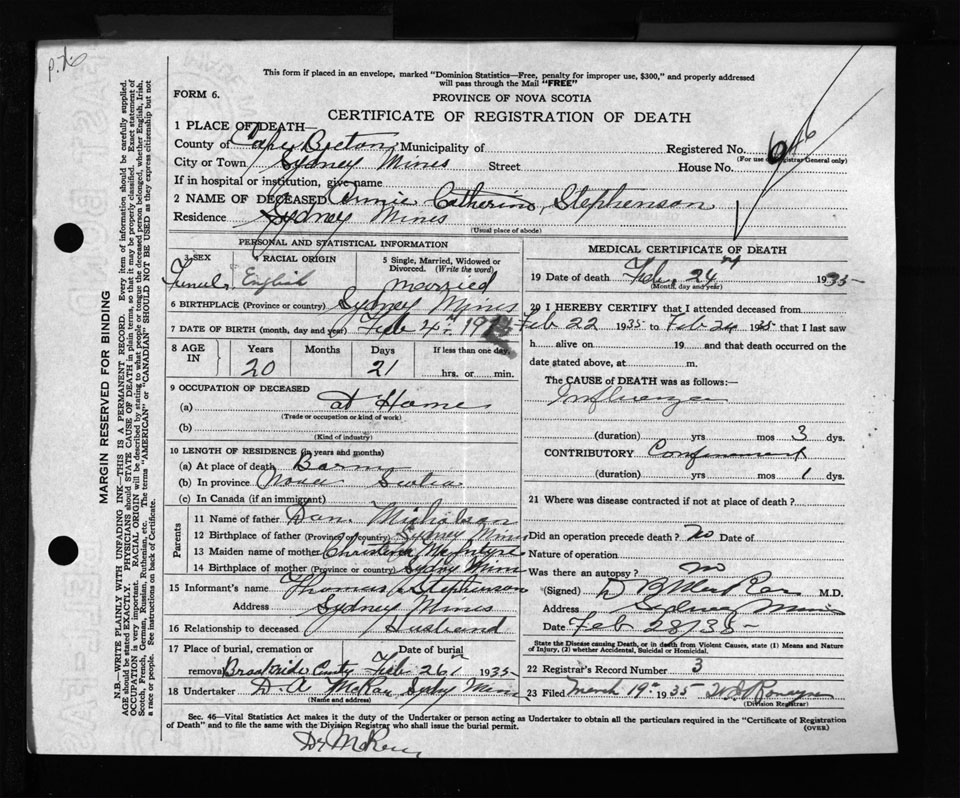 This form if placed in an envelope, marked "Dominion Statistics—Free, penalty for improper use, $300," and properly addressed
will pass through the Mail "FREE"
FORM 6.
PROVINCE OF NOVA SCOTIA
CERTIFICATE OF REGISTRATION OF DEATH
1 PLACE OF DEATH—
County of Cape Breton Municipality of Registered No.
(For use of Registrar General only)
City or Town Sydney Mines Street House No.
If in hospital or institution, give name
2 NAME OF DECEASED Annie Catherine Stephenson
Residence Sydney Mines
(Usual place of abode)
PERSONAL AND STATISTICAL INFORMATION
3 SEX 4 RACIAL ORIGIN 5 Single, Married, Widowed or Divorced. (Write the word)
Female English married
6 BIRTHPLACE (Province or country) Sydney Mines
7 DATE OF BIRTH (month, day and year) Feb 4
8 AGE IN Years Months Days If less than one day
20 21 hrs. or min.
9 OCCUPATION OF DECEASED
(a) At Home
(Trade or occupation or kind of work)
(b)
(Kind of industry)
10 LENGTH OF RESIDENCE (in years and months)
(a) At place of death Born
(b) In province Nova Scotia
(c) In Canada (if an immigrant)
Parents
11 Name of father Dan Nicholson
12 Birthplace of father (Province or country) Sydney Mines
13 Maiden name of mother Christena McIntyre
14 Birthplace of mother (Province or country) Sydney Mines
15 Informant's name Thomas Stephenson
Address Sydney Mines
16 Relationship to deceased Husband
17 Place of burial, cremation or removal Date of burial
Feb 26 1935
18 Undertaker D. A. McRae Sydney Mines
(Name and address)
MEDICAL CERTIFICATE OF DEATH
19 Date of death Feb 24 1935
(Month, day and year)
20 I HEREBY CERTIFY that I attended deceased from
Feb 22 1935 to Feb 24 1935 that I last saw
h alive on 19 and that death occurred on the
date stated above, at m.
The CAUSE of DEATH was as follows:
Influenza
(duration) yrs mos 3 dys.
CONTRIBUTORY Confinement
(duration) yrs mos 1 dys.
21 Where was disease contracted if not at place of death?
Did an operation precede death? No Date of
Nature of operation
Was there an autopsy? No
(Signed) M.D.
Address Sydney Mines
Date Feb 28/35
State the Disease causing Death, or in death from Violent Causes, state (1) Means and Nature of Injury, (2) whether Accidental, Suicidal or Homicidal.
22 Registrar's Record Number 3
23 Filed March 19 1935
(Division Registrar)
Sec. 46—Vital Statistics Act makes it the duty of the Undertaker or person acting as Undertaker to obtain all the particulars required in the "Certificate of Registration
of Death" and to file the same with the Division Registrar who shall issue the burial permit.
(OVER)
MARGIN RESERVED FOR BINDING
N.B.—WRITE PLAINLY WITH UNFADING INK—THIS IS A PERMANENT RECORD. Every item of information should be carefully supplied.
AGE should be stated EXACTLY. PHYSICIANS should STATE CAUSE OF DEATH in plain terms, so that it may be properly classified. Exact statement of
OCCUPATION is very important. RACIAL ORIGIN will be described by stating to what people or tongue the deceased person belonged, whether English, Irish,
Scotch, French, German, Russian, Ruthenian, etc. The terms "AMERICAN" or "CANADIAN" SHOULD NOT BE USED as they express citizenship but not
a race or people. See instructions on back of Certificate.